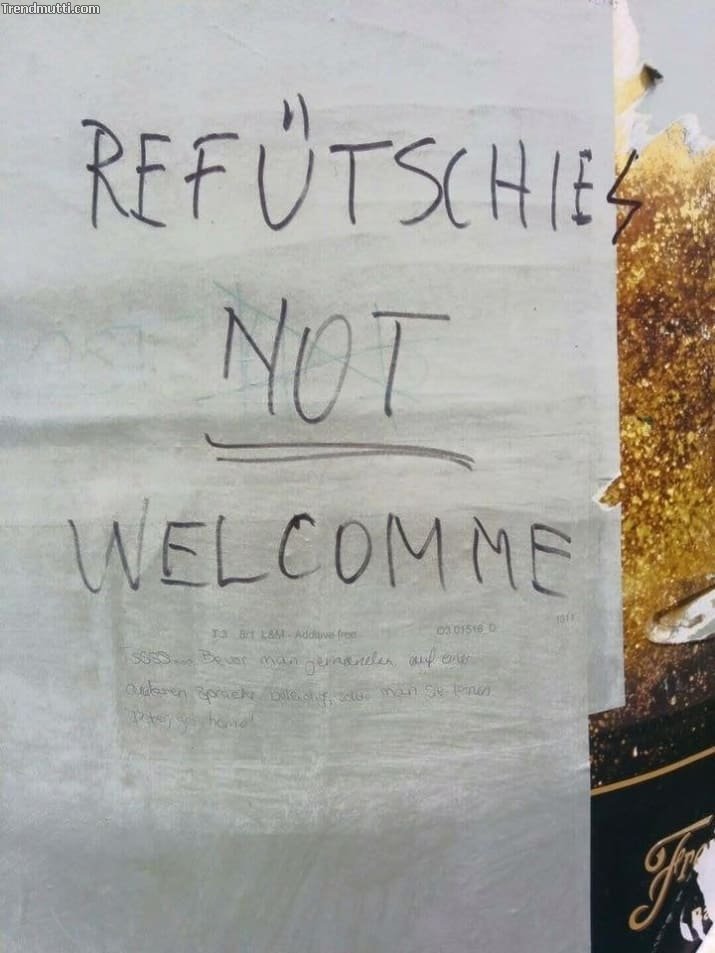 Trendmutti.com
REFÜTSCHIES
NOT
WELCOMME
8/1 L&M - Additive free
1011
Tssss... Bevor man jemanden auf einer
anderen Sprache beleidigt, sollte man sie lernen